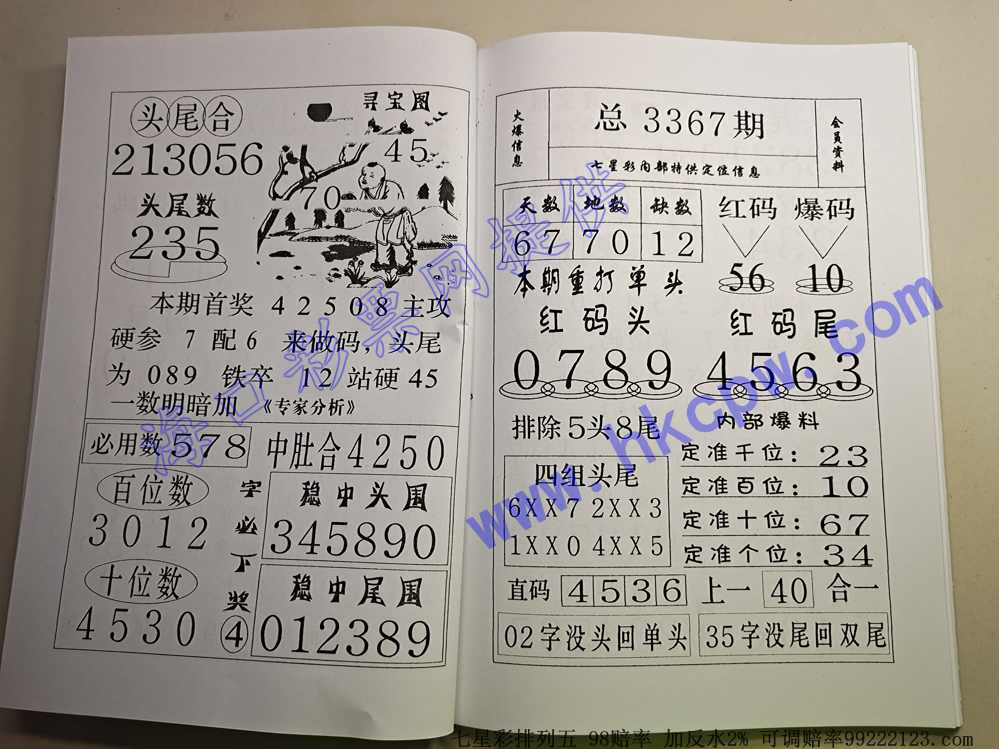 头尾合
213056
头尾数
235
寻宝图
45
70
本期首奖 4 2 5 0 8 主攻
硬参 7 配 6 来做码，头尾
为 089 铁卒 12 站硬 45
一数明暗加 《专家分析》
必用数 578
中肚合4250
百位数
3012
十位数
4530
字必下奖④
稳中头围
345890
稳中尾围
012389
火爆信息
总 3367期
七星彩内部特供定位信息
会员资料
天数 地数 缺数
67 70 12
红码 爆码
56 10
本期重打单头
红码头
0789
红码尾
4563
排除5头8尾
四组头尾
6XX7 2XX3
1XX0 4XX5
内部爆料
定准千位：23
定准百位：10
定准十位：67
定准个位：34
直码 4536 上一 40 合一
02字没头回单头
35字没尾回双尾
海口彩票网提供
www.hkcpw.com
七星彩排列五 98赔率 加反水2% 可调赔率99222123.com